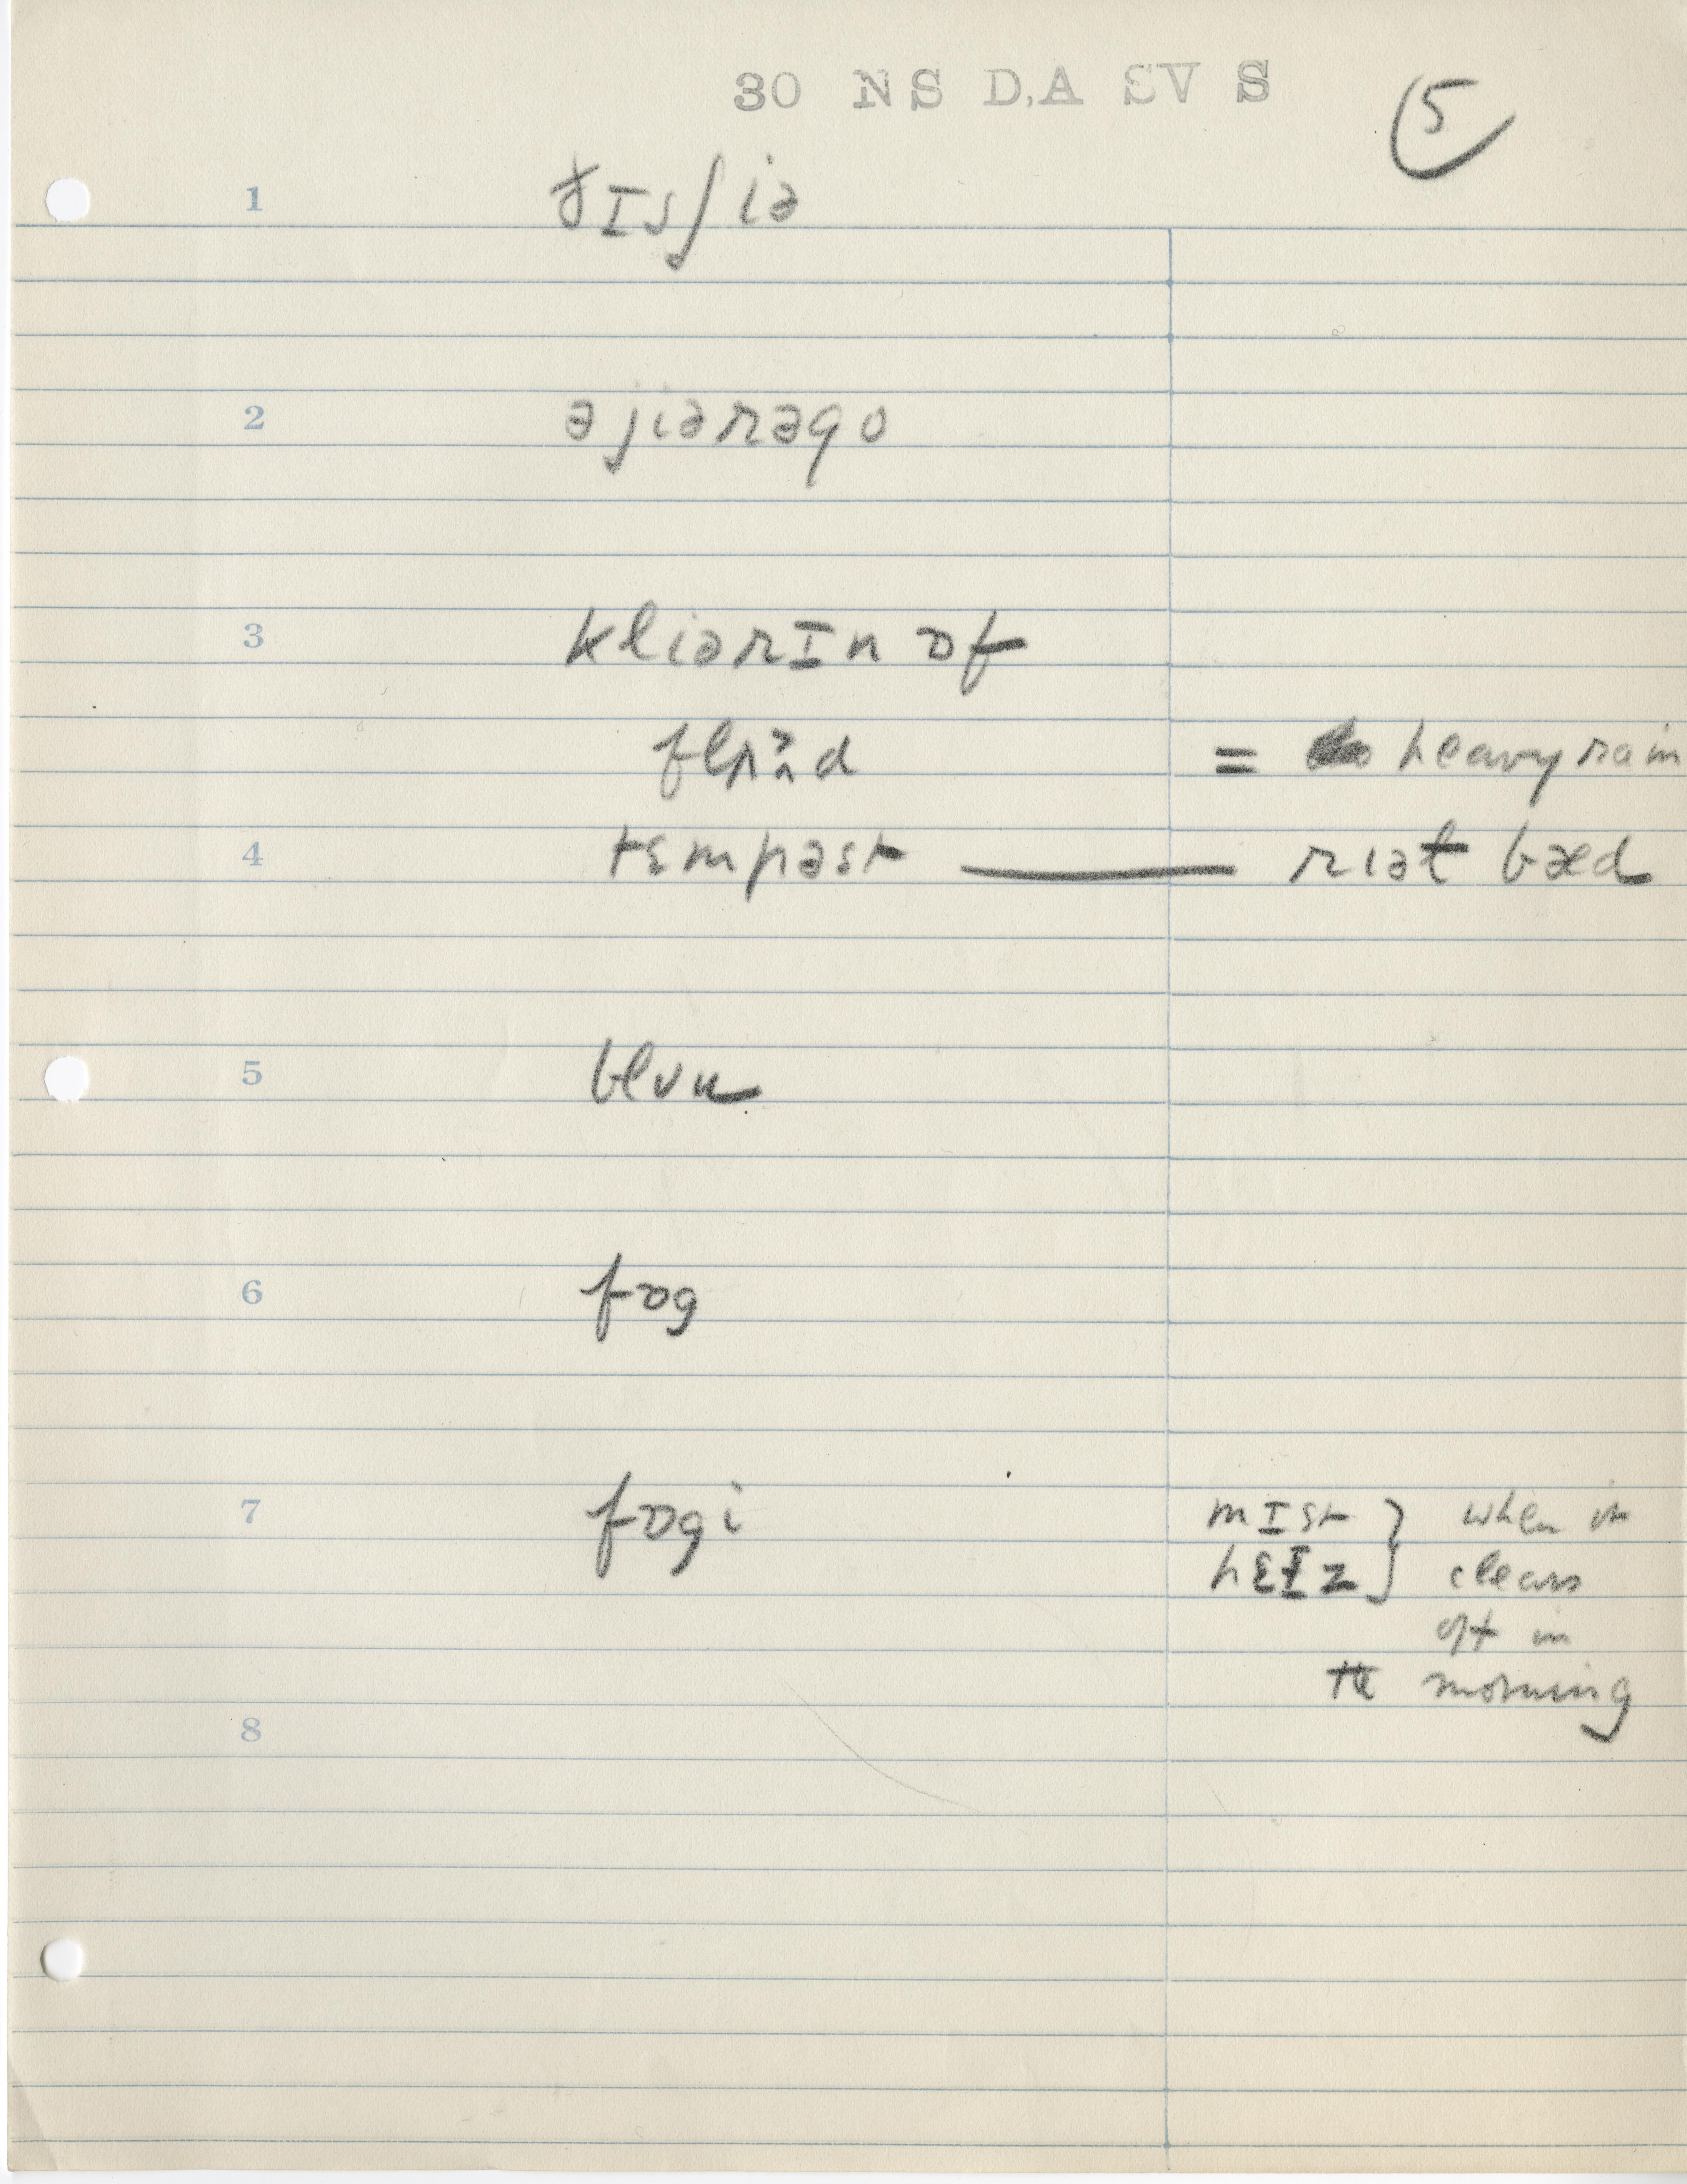 30 NS D,A SV S
5
1 ðɪsʃiə
2 əjiərəgo
3 kliərɪn ɒf
= heavy rain
4 tɛmpəst — riət bæd
5
6 fɒg
7 fɒgi
mɪst } when it
hɛɪz } clears
off in
the morning
8